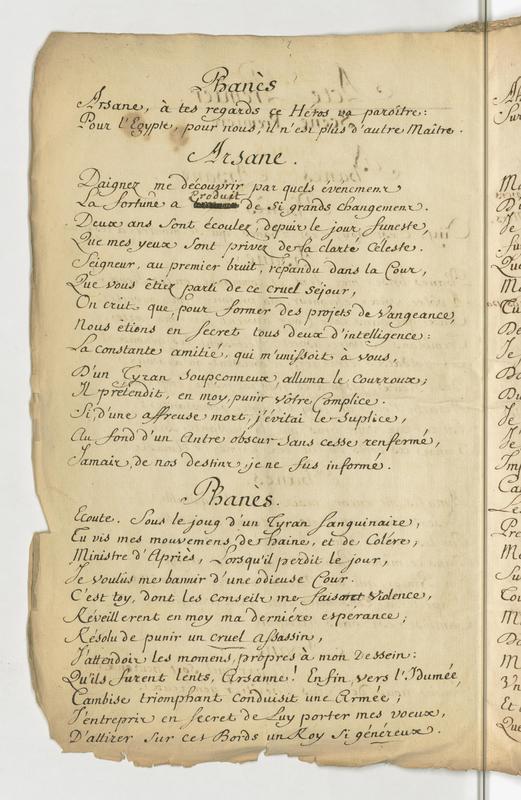 Phanès
Arsane, à tes regards ce Héros va paroître:
Pour l'Egypte, pour nous, il n'est plus d'autre Maître.
Arsane.
Daignez me découvrir par quels evenemens
La fortune a produit de si grands changemens.
Deux ans sont écoulez, depuis le jour funeste,
Que mes yeux sont privez de la clarté Céleste.
Seigneur, au premier bruit, répandu dans la Cour,
Que vous êtiez parti de ce cruel séjour,
On crût que, pour former des projets de vangeance,
Nous êtions en secret tous deux d'intelligence:
La constante amitié, qui m'unissoit à vous,
D'un Tyran soupçonneux, alluma le courroux;
Il prétendit, en moy, punir vôtre Complice.
Si, d'une affreuse mort, j'évitai le Suplice,
Au fond d'un Antre obscur sans cesse renfermé,
Jamais, de nos destins je ne fus informé.
Phanès.
Ecoute. Sous le joug d'un Tyran sanguinaire,
Tu vis mes mouvemens de haine, et de Colére;
Ministre d'Apriès, Lorsqu'il perdit le jour,
Je voulus me bannir d'une odieuse Cour.
C'est toy, dont les conseils me faisant violence,
Réveillerent en moy ma derniére espérance;
Résolu de punir un cruel assassin,
J'attendois les momens, propres à mon Dessein:
Qu'ils furent lents, Arsanne! Enfin vers l'Idumée,
Cambise triomphant conduisit une Armée;
J'entrepris en secret de Luy porter mes voeux,
D'attirer sur ces Bords un Roy si généreux.